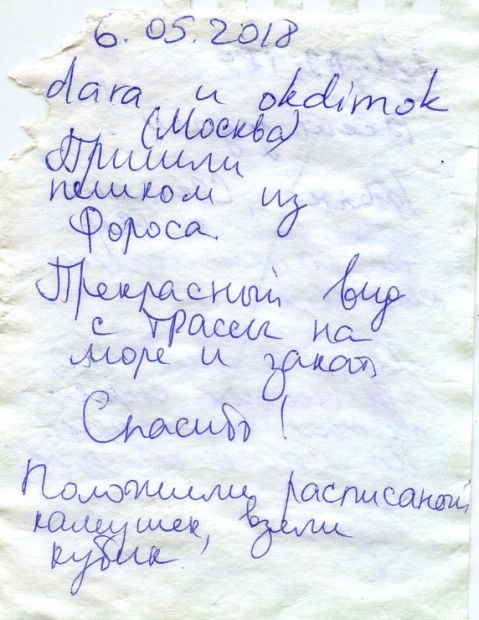 6.05.2018
dara и okdimok
(Москва)
Пришли
пешком из
Фороса.
Прекрасный вид
с трассы на
море и закат
Спасибо!
Положили расписаный
камушек, взяли
кубик.